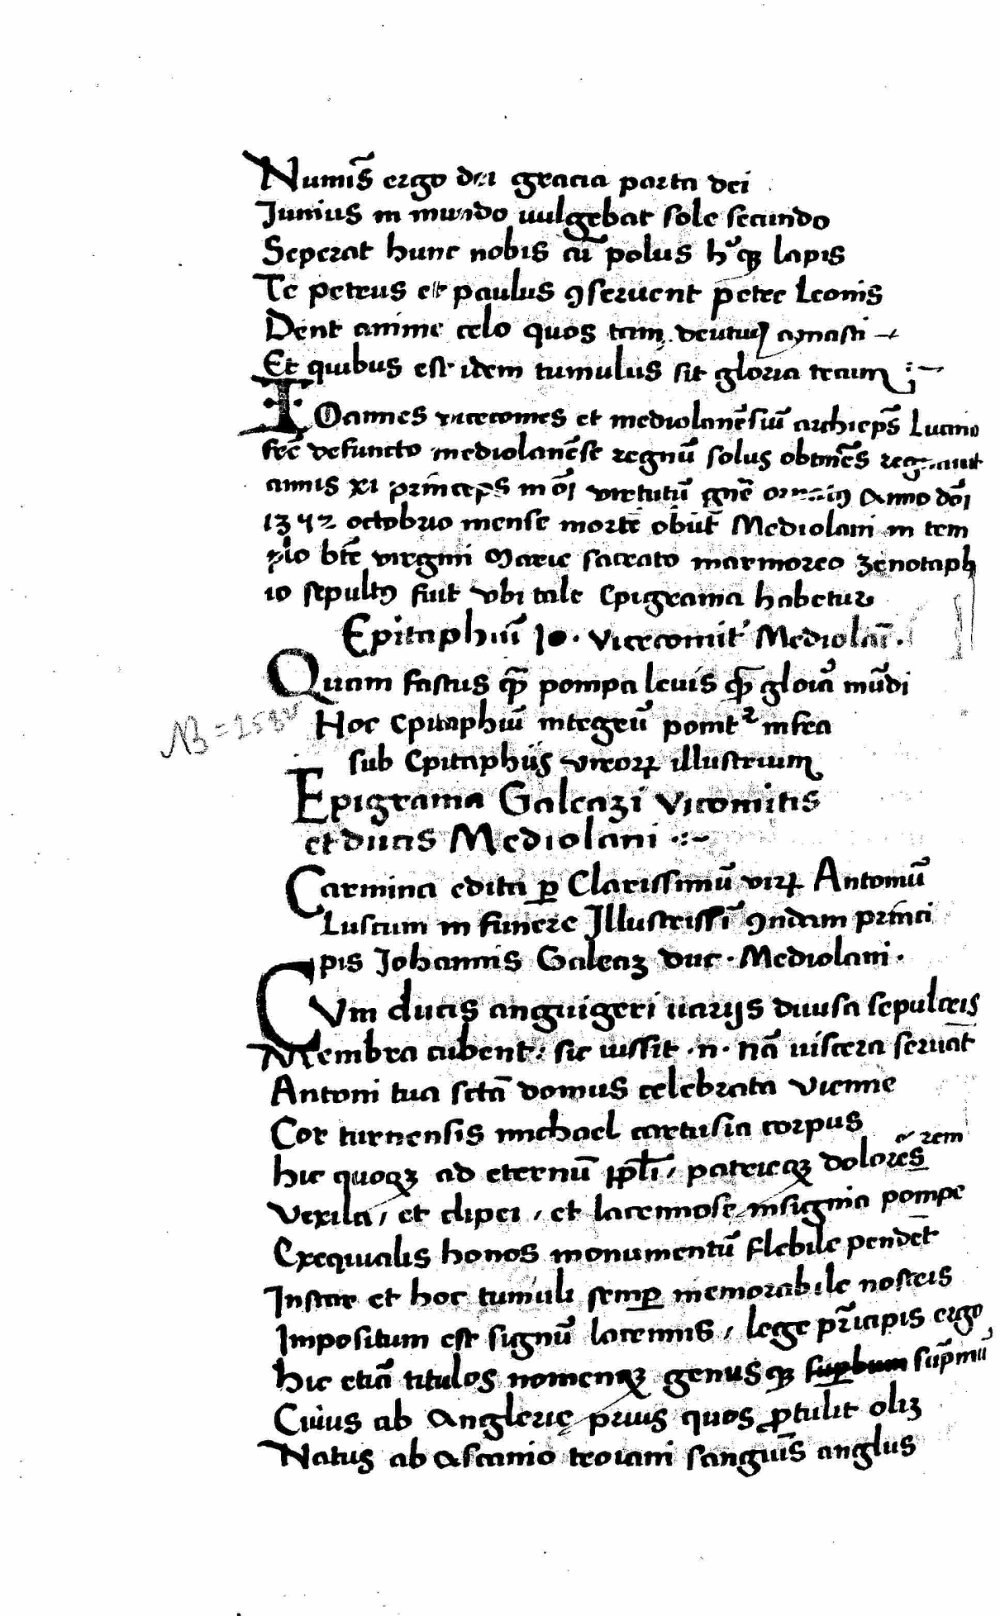 Numīs ergo dei gracia porta dei
Iunius in mundo uulgebat sole secundo
Seperat hunc nobis cū polus hūqꝫ lapis
Te petrus et paulus ꝯseruent petre Leonis
Dent anime celo quos tam deuotus amasti
Et quibus est idem tumulus sit gloria tecum :~
IOannes vicecomes et mediolanēsiū archiepūs Lucino
fr̄e defuncto mediolanēse regnū solus obtinēs regnauit
annis xi prīnceps in oī virtutū gn̄e Anno dōi
1352 octobrio mense mortē obiit Mediolani in tem
plo btē virgini Marie sacrato marmoreo zenotaph
io sepultꝰ fuit vbi tale epigrama habetur
Epitaphiū Io. vicecomit' Mediolaī.
Quam fastus qꝫ pompa leuis qꝫ gloīa mūdi
NB =
Hoc epitaphiū integrū ponit~ infra
sub epitaphijs virorꝝ illustrium
Epigrama Galeazi vicomitis
et ducis Mediolani .:~
Carmina edita ꝑ Clarissimū virꝝ Antoniū
Luscum in funere Illustrissī ꝯndam prīnci
pis Iohannis Galeaz duc. Mediolani.
CVm ducis anguigeri uarijs diuisa sepulcris
Membra cubent: sic iussit .n. nā uiscera seruāt
Antoni tua sctā domus celebrata vienne
Cor turnensis michael cartusia corpus
hic quoqꝫ ad eternū ppl̄i, patrieqꝫ dolorēs rem
Vexila, et clipei, et lacrimose insignia pompe
Exequialis honos monumentū flebile pendēt
Instar et hoc tumuli semꝑ memorabile nostris
Impositum est signū lacrimis, lege prīncipis ergo
hic etiā titulos nomenqꝫ genusqꝫ suꝑbum sup̄mū
Cuius ab Anglerie prius quos ꝓtulit olīm
Natus ab Ascanio troiani sanguīs anglus